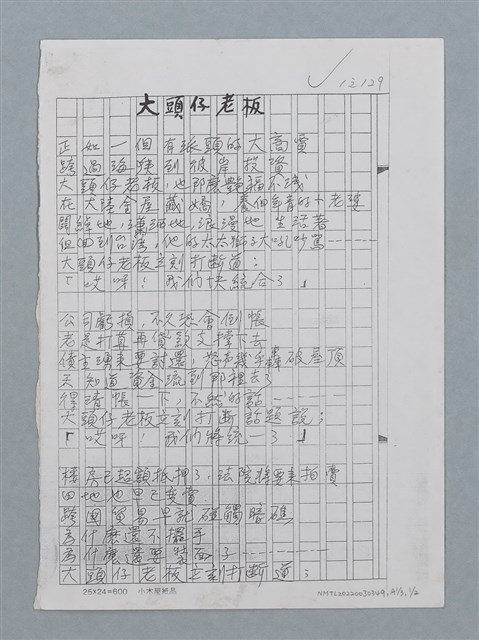 13.129
大頭仔老板
正如一個有派頭的大商賈
跨過海峽到彼岸投資
大頭仔老板，也那麼艷福不淺
在大陸金屋藏嬌，養個年青的小老婆
開縱地，瀟洒地，浪漫地 生活著
但回到台湾，他的太太獅子大吼吵罵------
大頭仔老板立刻打断道：
「哎呀！我們快統合了」
公司虧損，不久恐會倒帳
老是打算再貸款支撐下去
債主湧來要討還，怒声幾乎轟破屋頂
天知道資金流到那裡去了
得清帳一下，不然的話------
大頭仔老板立刻打断話題說：
「哎呀！我們將統一了」
樓房已超額抵押了，法院将要来拍賣
田地也早已变賣
跨國貿易早就碰觸暗礁
為什麼還不擺手
為什麼還要裝面子------
大頭仔老板立刻打断道：
25×24=600 小木屋紙品
NMTL20220030949, 4/3, 1/2